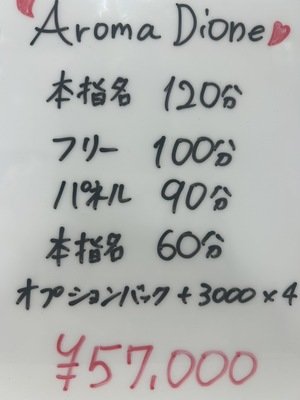 Aroma Dione
本指名 120分
フリー 100分
パネル 90分
本指名 60分
オプションバック + 3000 × 4
¥57,000